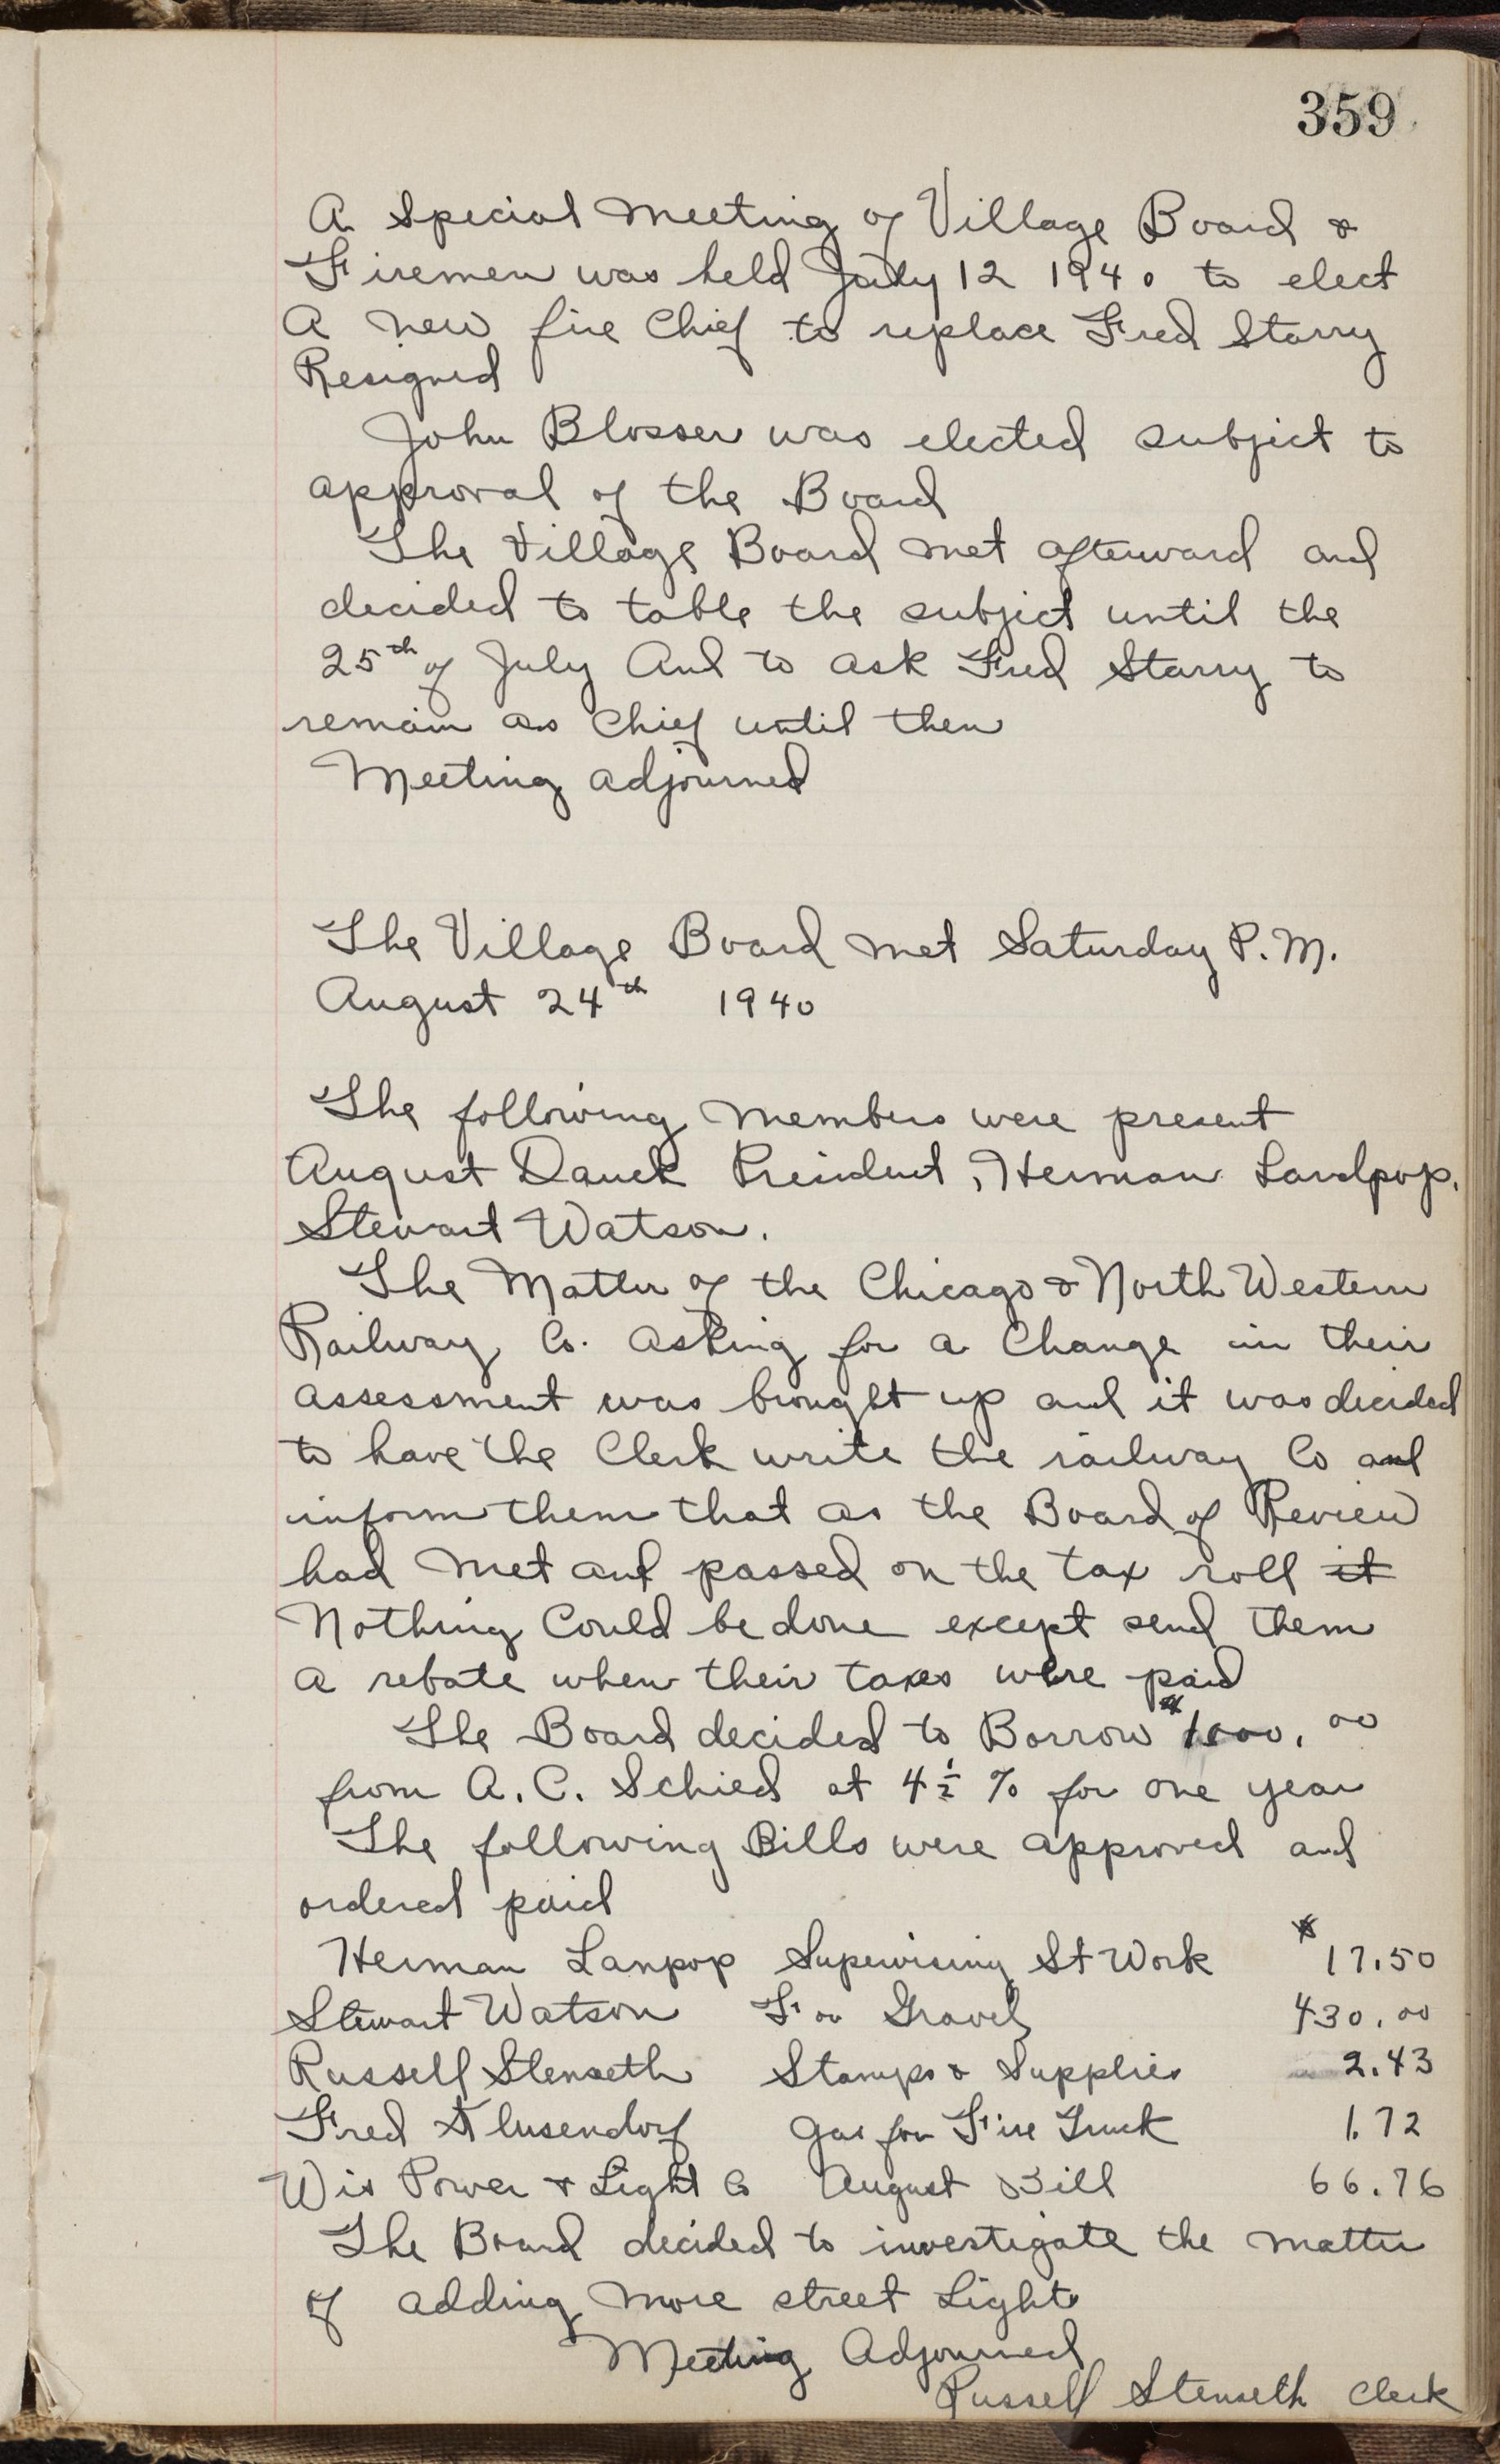 359
A Special Meeting of Village Board &
Firemen was held July 12 1940 to elect
A new fire Chief to replace Fred Starry
Resigned
John Blosser was elected subject to
approval of the Board
The Village Board met afterward and
decided to table the subject until the
25th of July And to ask Fred Starry to
remain as Chief until then
Meeting adjourned
The Village Board met Saturday P.M.
August 24th 1940
The following Members were present
August Danck President, Herman Landpop,
Stewart Watson.
The Matter of the Chicago & North Western
Railway Co. Asking for a Change in their
assessment was brought up and it was decided
to have the Clerk write the railway Co and
inform them that as the Board of Review
had Met and passed on the tax roll it
Nothing Could be done except send them
a rebate when their taxes were paid
The Board decided to Borrow $1000.00
from A. C. Schied at 4 1/2 % for one year
The following Bills were approved and
ordered paid
Herman Lanpop Supervising St Work $17.50
Stewart Watson For Gravel 430.00
Russell Stenseth Stamps & Supplies 2.43
Fred gas for Fire Truck 1.72
Wis Power & Light Co August Bill 66.76
The Board decided to investigate the matter
of adding more street Lights
Meeting Adjourned
Russell Stenseth Clerk